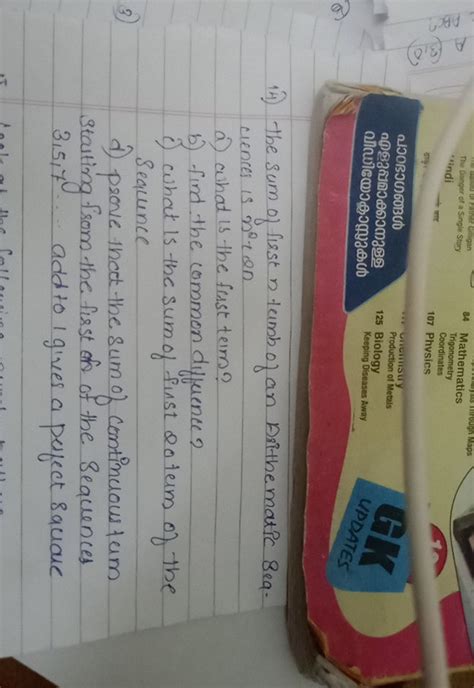 14) the sum of first n termb of an Arithematic Seq-
uences is n²+2n
a) what is the fust term?
b) find the common diffuence?
c) what is the sum of first 20 teum of the
Sequence
d) prove that the sum of continuous teum
Staating from the first of the Sequences
3,5,7 ... add to 1 gives a pefect Square
പാഠഭാഗങ്ങൾ
എളുപ്പമാക്കാനുള്ള
വീഡിയോകാസ്സുകൾ
The Danger of a Single Story
84 Mathematics
Trigonometry
Coordinates
107 Physics
Chemistry
Production of Metals
125 Biology
Keeping Diseases Away
GK
UPDATES